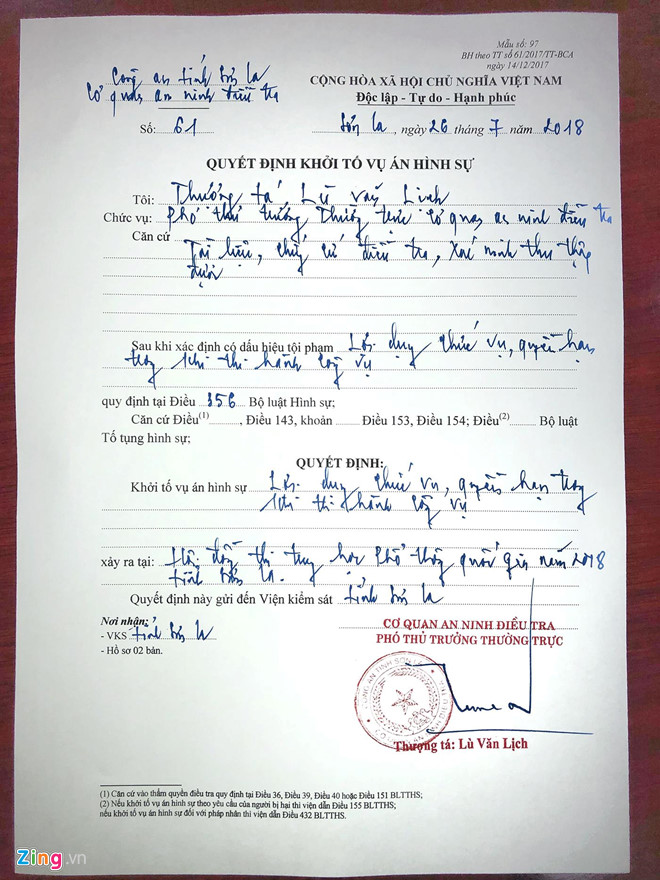 Mẫu số: 97
BH theo TT số 61/2017/TT-BCA
ngày 14/12/2017
Công an tỉnh Sơn La
Cơ quan an ninh điều tra
CỘNG HÒA XÃ HỘI CHỦ NGHĨA VIỆT NAM
Độc lập - Tự do - Hạnh phúc
Số: 61
Sơn La, ngày 26 tháng 7 năm 2018
QUYẾT ĐỊNH KHỞI TỐ VỤ ÁN HÌNH SỰ
Tôi: Thượng tá, Lù Văn
Chức vụ: Phó thủ trưởng Thường trực Cơ quan an ninh điều tra
Căn cứ
Tài liệu, chứng cứ điều tra, xác minh thu thập
được
Sau khi xác định có dấu hiệu tội phạm Lợi dụng chức vụ, quyền hạn
trong khi thi hành công vụ
quy định tại Điều 356 Bộ luật Hình sự;
Căn cứ Điều(1)........, Điều 143, khoản ........ Điều 153, Điều 154; Điều(2)........ Bộ luật
Tố tụng hình sự;
QUYẾT ĐỊNH:
Khởi tố vụ án hình sự Lợi dụng chức vụ, quyền hạn trong
khi thi hành công vụ
xảy ra tại: Hội đồng thi trung học Phổ thông quốc gia năm 2018
tỉnh Sơn La.
Quyết định này gửi đến Viện kiểm sát tỉnh Sơn La
Nơi nhận:
- VKS tỉnh Sơn La
- Hồ sơ 02 bản.
CƠ QUAN AN NINH ĐIỀU TRA
PHÓ THỦ TRƯỞNG THƯỜNG TRỰC
Thượng tá: Lù Văn Lịch
(1) Căn cứ vào thẩm quyền điều tra quy định tại Điều 36, Điều 39, Điều 40 hoặc Điều 151 BLTTHS;
(2) Nếu khởi tố vụ án hình sự theo yêu cầu của người bị hại thì viện dẫn Điều 155 BLTTHS;
nếu khởi tố vụ án hình sự đối với pháp nhân thì viện dẫn Điều 432 BLTTHS.
Zing.vn